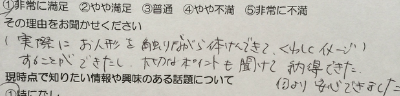 ①非常に満足 ②やや満足 ③普通 ④やや不満 ⑤非常に不満
その理由をお聞かせください
(実際にお人形を触りながら体けんできて、くわしくイメージ)
することができたし、大切なポイントも聞けて納得できた。
現時点で知りたい情報や興味のある話題について
何より安心できました
①特になし